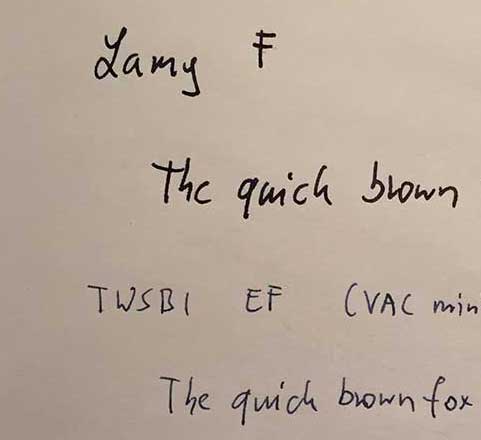 Lamy F
The quick brown
TWSBI EF (VAC min
The quick brown fox